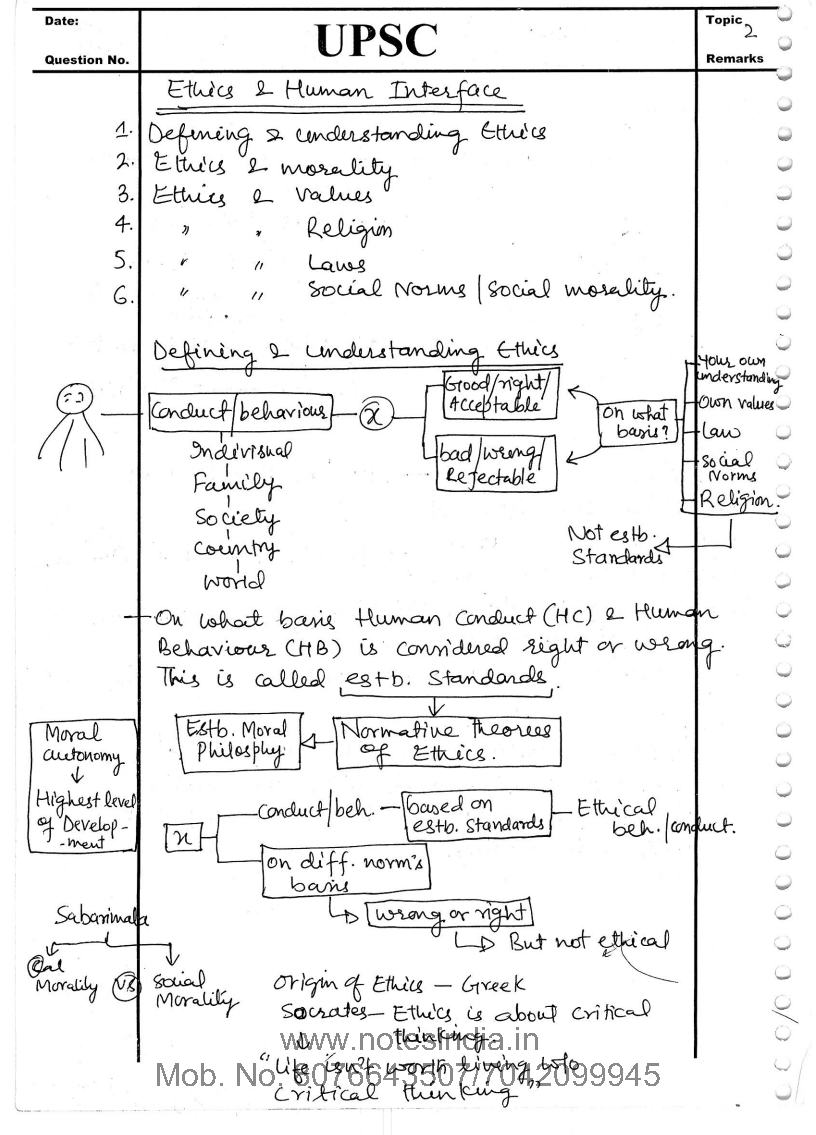 Date:
UPSC
Topic 2
Question No.
Remarks
Ethics & Human Interface
1. Defining & understanding Ethics
2. Ethics & morality
3. Ethics & Values
4. " " Religion
5. " " Laws
6. " " Social Norms/Social morality.
Defining & understanding Ethics
Conduct/behaviour
x
Good/right/
Acceptable
bad/wrong/
Rejectable
on what
basis?
Your own
understanding
Own values
Law
Social
Norms
Religion.
Indivisual
Family
Society
Country
World
Not estb.
Standards
On what basis Human Conduct (HC) & Human
Behaviour (HB) is considered right or wrong.
This is called estb. Standards.
Estb. Moral
Philosphy.
Normative theorees
of Ethics.
Moral
autonomy
Highest level
of Develop-
-ment
x
Conduct/beh. – based on
estb. Standards – Ethical
beh./conduct.
on diff. norm's
basis
wrong or right
But not ethical
Sabarimala
Morality
VS
Social
Morality
Origin of Ethics – Greek
Socrates – Ethics is about critical
thinking
www.notesindia.in
"Life isn't worth living w/o
Critical thinking"